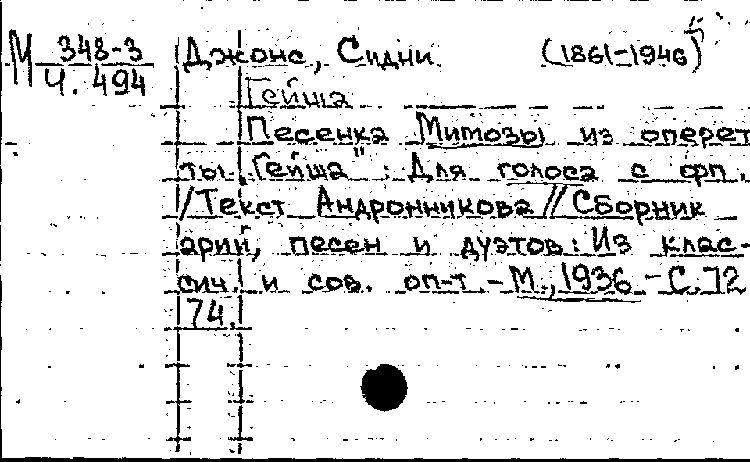 М 348-3
Ч. 494
Джонс, Сидни (1861-1946)
Гейша
Песенка Мимозы из оперет
ты „Гейша": Для голоса с фп.
/Текст Андронникова // Сборник
арий, песен и дуэтов: Из клас-
сич. и сов. оп-т. - М., 1936 - С. 72
74.